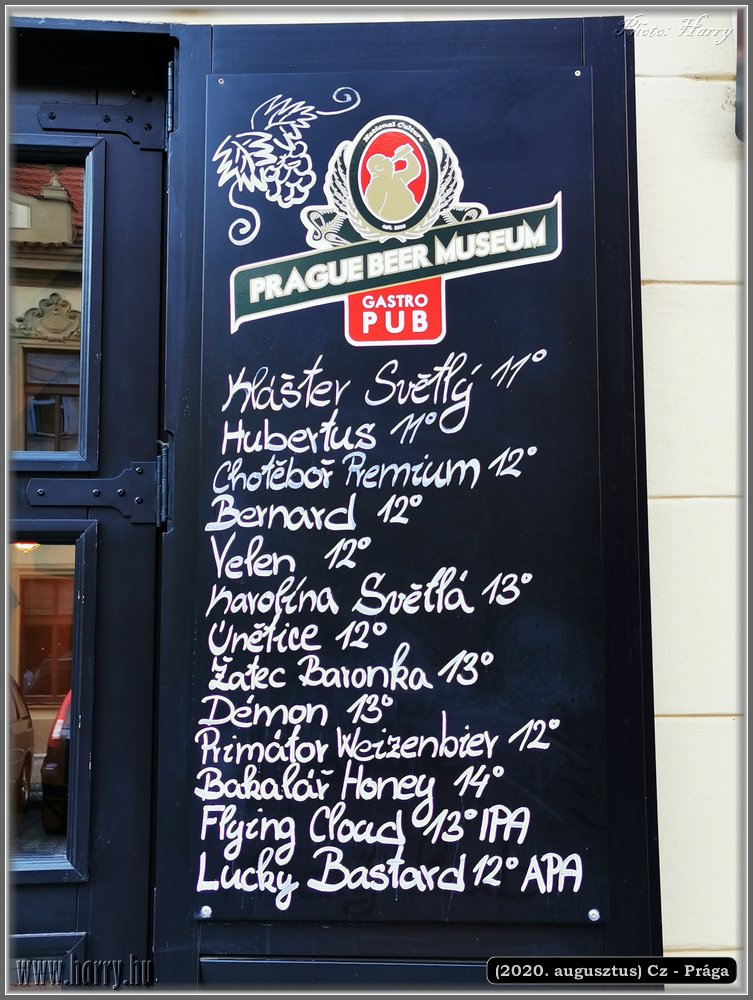 Photo: Harry
National Culture
EST. 2010
PRAGUE BEER MUSEUM
GASTRO
PUB
Klášter Světlý 11°
Hubertus 11°
Chotěboř Premium 12°
Bernard 12°
Velen 12°
Karolína Světlá 13°
Únětice 12°
Žatec Baronka 13°
Démon 13°
Primátor Weizenbier 12°
Bakalář Honey 14°
Flying Cloud 13° IPA
Lucky Bastard 12° APA
www.harry.hu
(2020. augusztus) Cz - Prága